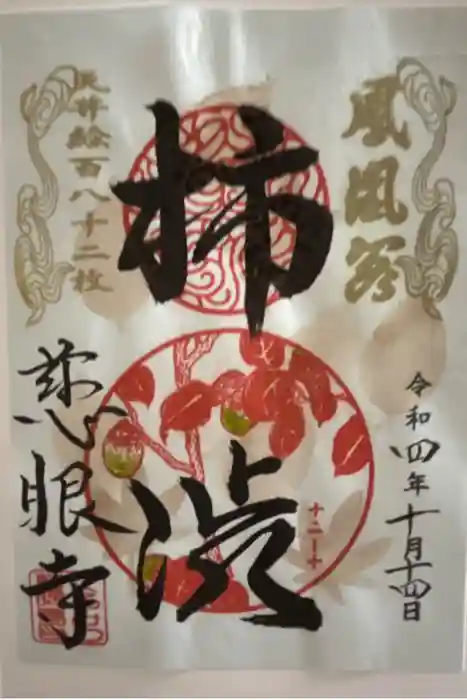 鳳凰箏
令和四年十月十四日
柿渋
十二ー十
天井絵百八十二枚
慈眼寺